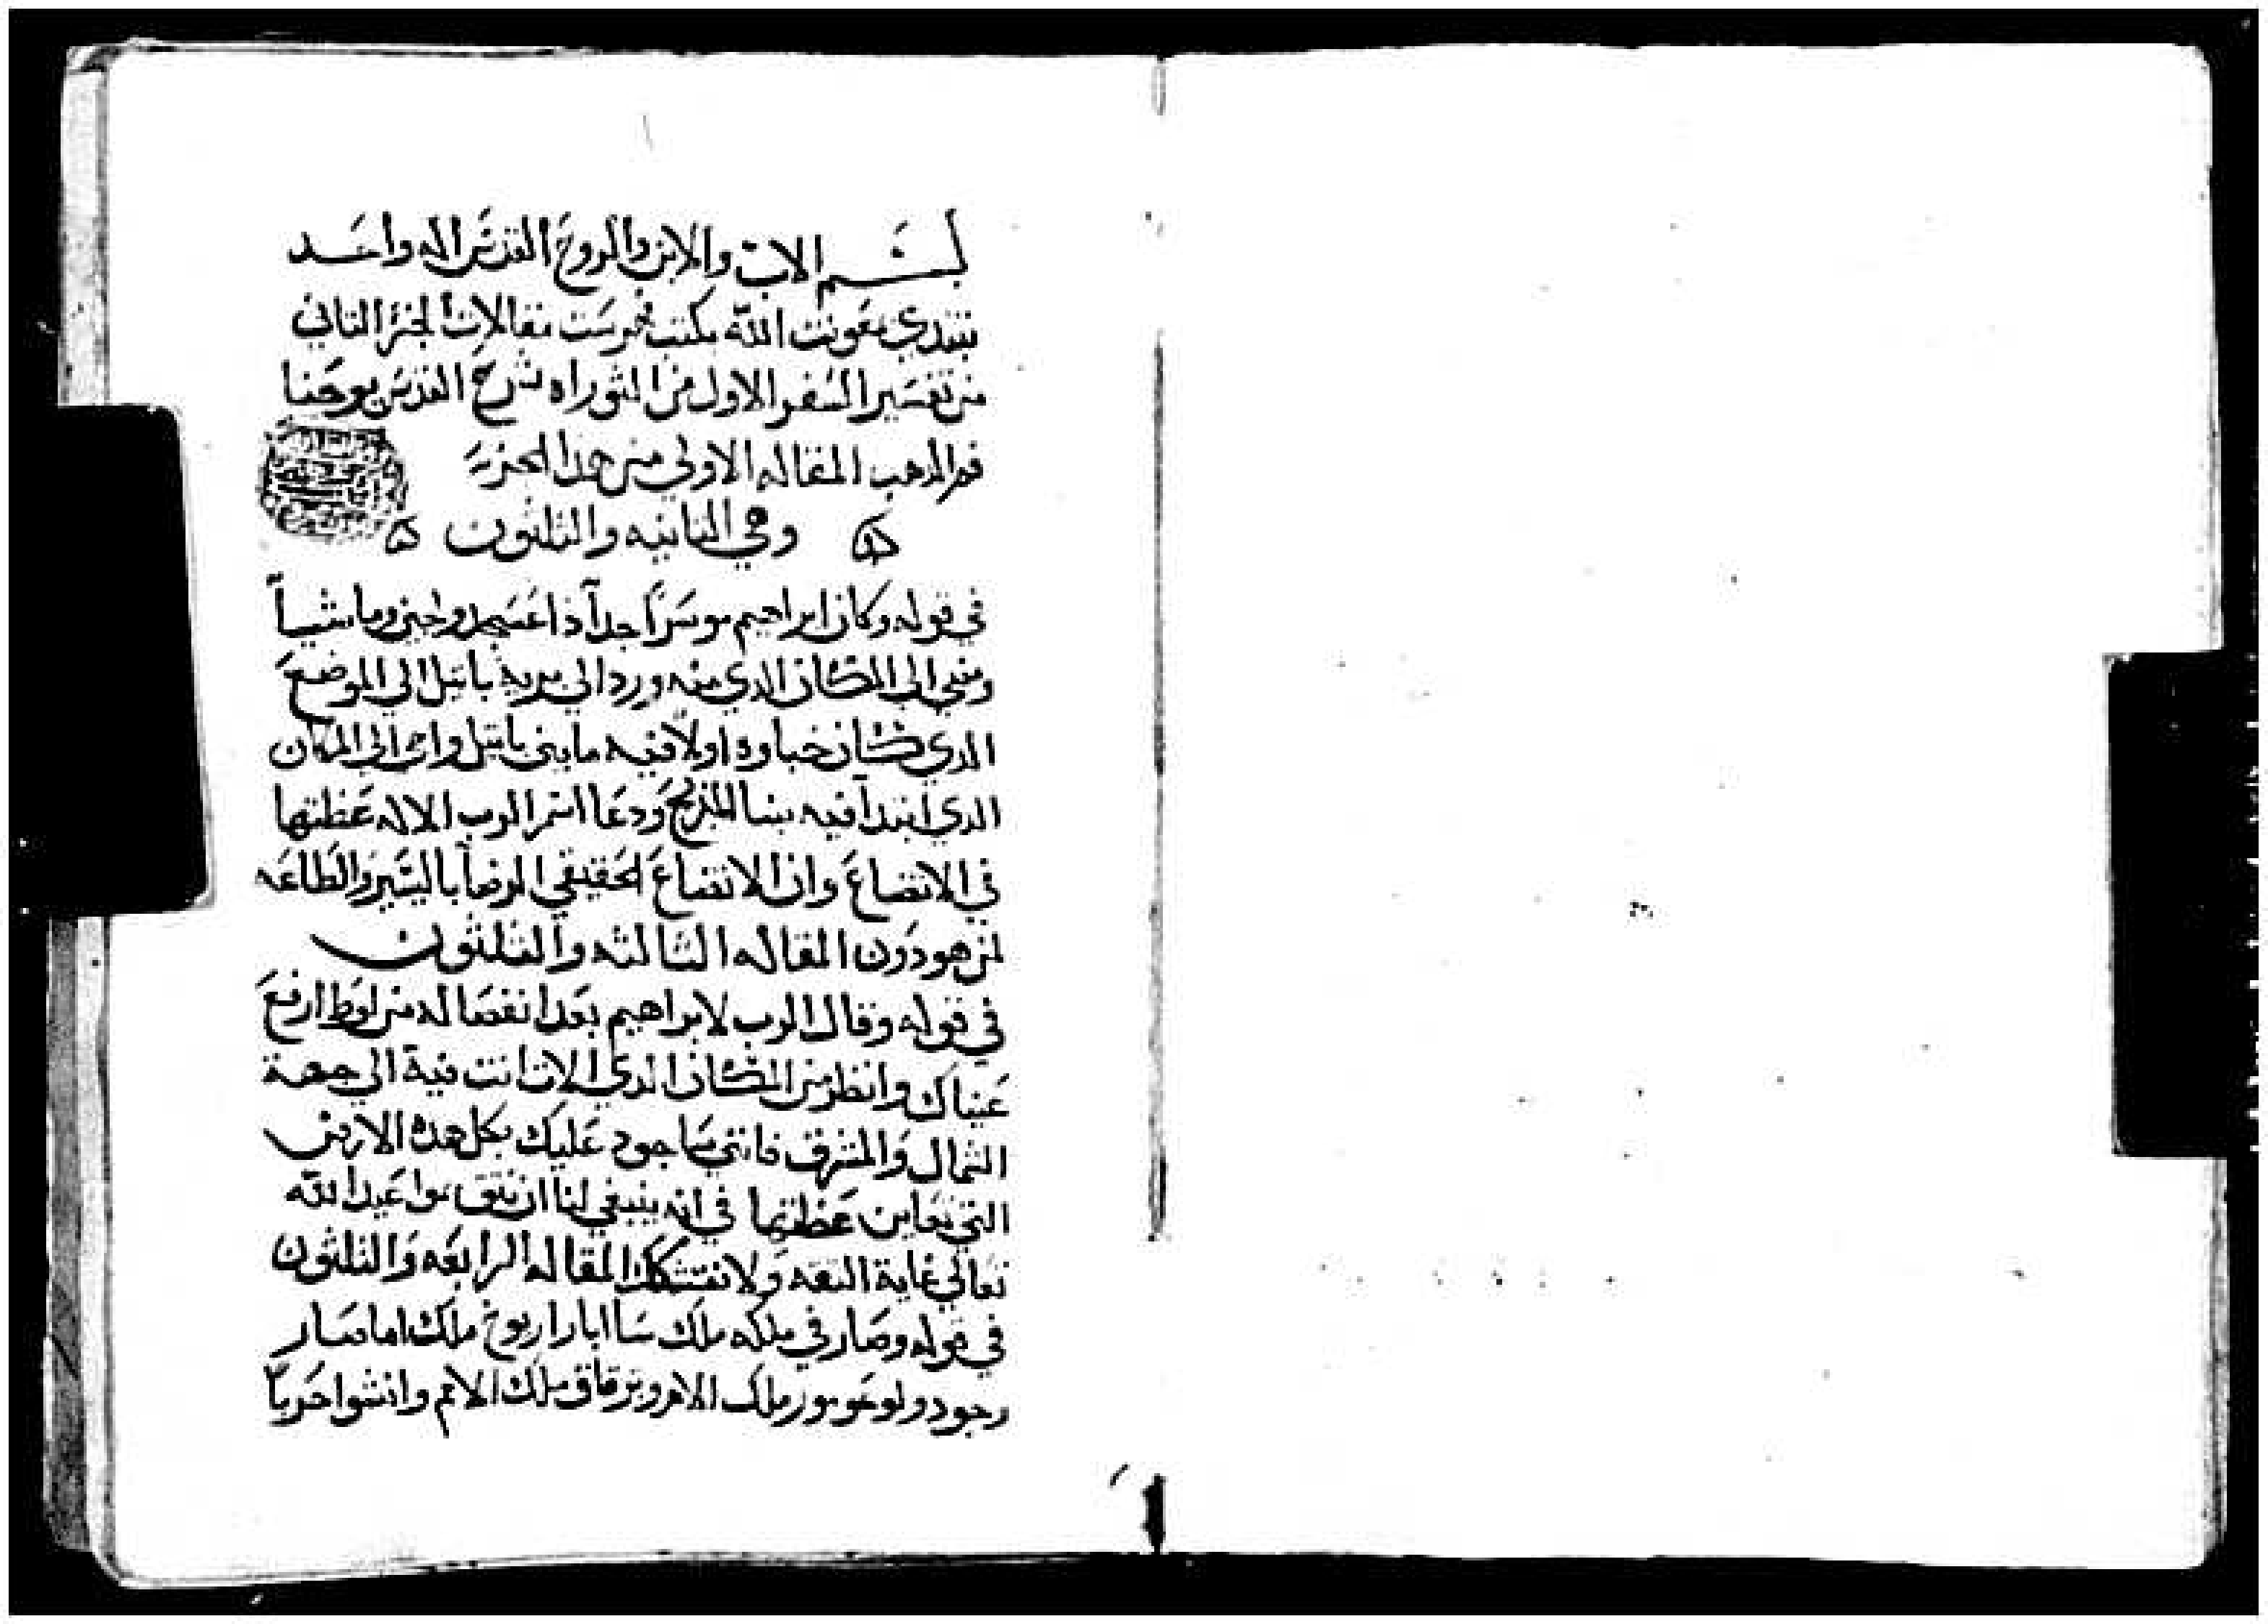 بسم الاب والابن والروح القدس اله واحد
نبتدي بمعونت الله بكتب فهرست مقالات الجزء التاني
من تفسير السفر الاول من التوراه شرح القديس يوحنا
فم الدهب المقاله الاولي من هدا الجزء
وهي التانيه والتلتون
في قوله وكان ابراهيم موسرًا جداً ذا عسجد ولجين وماشيهً
ومضي الي المكان الدي منه ورد الي بريه باتيل الي الموضع
الدي كان خباوه اولاً فيه ما بين باتيل واي الي المكان
الدي ابتدا فيه ببنا المذبح ودعا اسم الرب الاله عظتها
في الاتضاع وان الاتضاع الحقيقي الرضا باليسير والطاعه
لمن هو دون المقاله التالته والتلتون
في قوله وقال الرب لابراهيم بعد انفصاله من لوط ارفع
عيناك وانظر من المكان الدي الان انت فية الي جهة
الشمال والمشرق فانني ساجود عليك بكل هده الارض
التي تعاين عظتها في انه ينبغي لنا ان نتق بمواعيد الله
تعالي غاية التقه ولا نتشكك المقاله الرابعه والتلتون
في قوله وصار في ملكه ملك ساابار اريوخ ملك اماصار
ملك الامم وانشوا حرباً